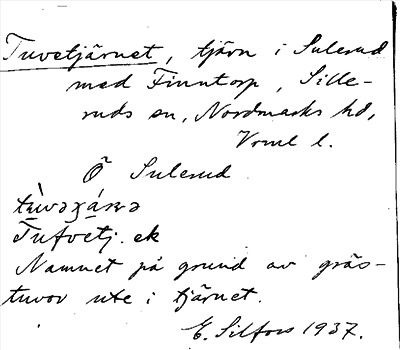 Tuvetjärnet, tjärn i Sulerud
med Finntorp, Sille-
ruds sn, Nordmarks hd,
Vrml l.
Ö Sulerud
Tufvetj. ek
Namnet på grund av gräs-
tuvor ute i tjärnet.
E. Silfors 1937.